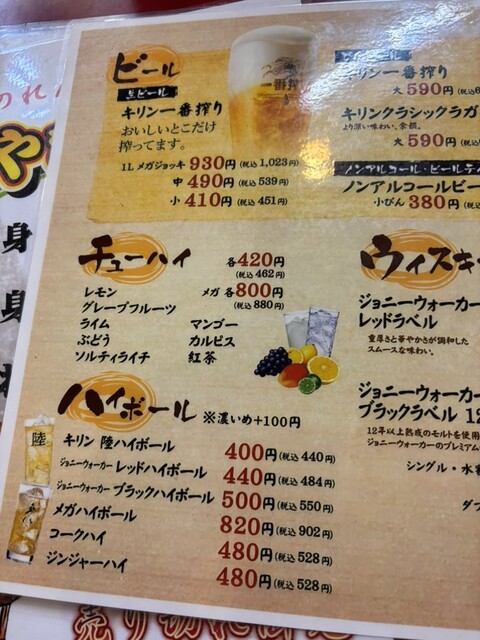 ビール
生ビール
キリン一番搾り
おいしいとこだけ
搾ってます。
1L メガジョッキ 930円 (税込 1,023円)
中 490円 (税込 539円)
小 410円 (税込 451円)
一番搾り
キリン一番搾り
大 590円
キリンクラシックラガ
より深い味わい、余韻。
大 590円
ノンアルコール・ビールテ
ノンアルコールビー
小びん 380円
チューハイ
各 420円
(税込 462円)
メガ 各 800円
(税込 880円)
レモン
グレープフルーツ
ライム
ぶどう
ソルティライチ
マンゴー
カルピス
紅茶
ウイスキ
ジョニーウォーカー
レッドラベル
重厚さと華やかさが調和した
スムースな味わい。
ジョニーウォーカー
ブラックラベル 12
12年以上熟成のモルトを使用
ジョニーウォーカーのプレミアム
シングル・水
ダブ
ハイボール ※濃いめ+100円
キリン 陸ハイボール 400円 (税込 440円)
ジョニーウォーカー レッドハイボール 440円 (税込 484円)
ジョニーウォーカー ブラックハイボール 500円 (税込 550円)
メガハイボール 820円 (税込 902円)
コークハイ 480円 (税込 528円)
ジンジャーハイ 480円 (税込 528円)
陸
のれん
や
身
身
売り切れ